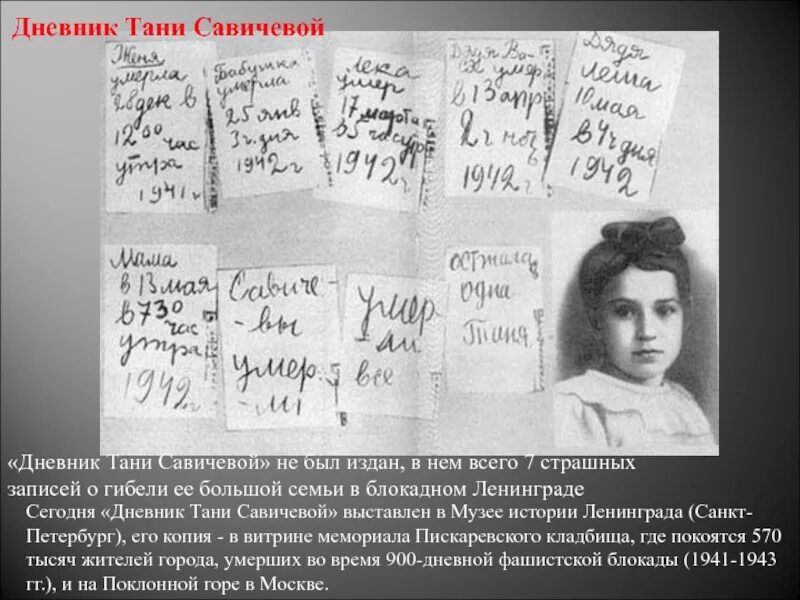 Дневник Тани Савичевой
Женя
умерла
28 дек в
12 00 час
утра
1941 г
Бабушка
умерла
25 янв
3 ч. дня
1942 г
Лека
умер
17 марта
в 5 час утр
1942 г
Дядя Ва-
ся умер
в 13 апр
2 ч ноч
1942 г
Дядя
Леша
10 мая
в 4 ч дня
1942
Мама
в 13 мая
в 7 30
час
утра
1942 г
Савиче-
-вы
умер.
-ли
умер
-ли
все
осталась
одна
Таня
«Дневник Тани Савичевой» не был издан, в нем всего 7 страшных
записей о гибели ее большой семьи в блокадном Ленинграде
Сегодня «Дневник Тани Савичевой» выставлен в Музее истории Ленинграда (Санкт-
Петербург), его копия - в витрине мемориала Пискаревского кладбища, где покоятся 570
тысяч жителей города, умерших во время 900-дневной фашистской блокады (1941-1943
гг.), и на Поклонной горе в Москве.